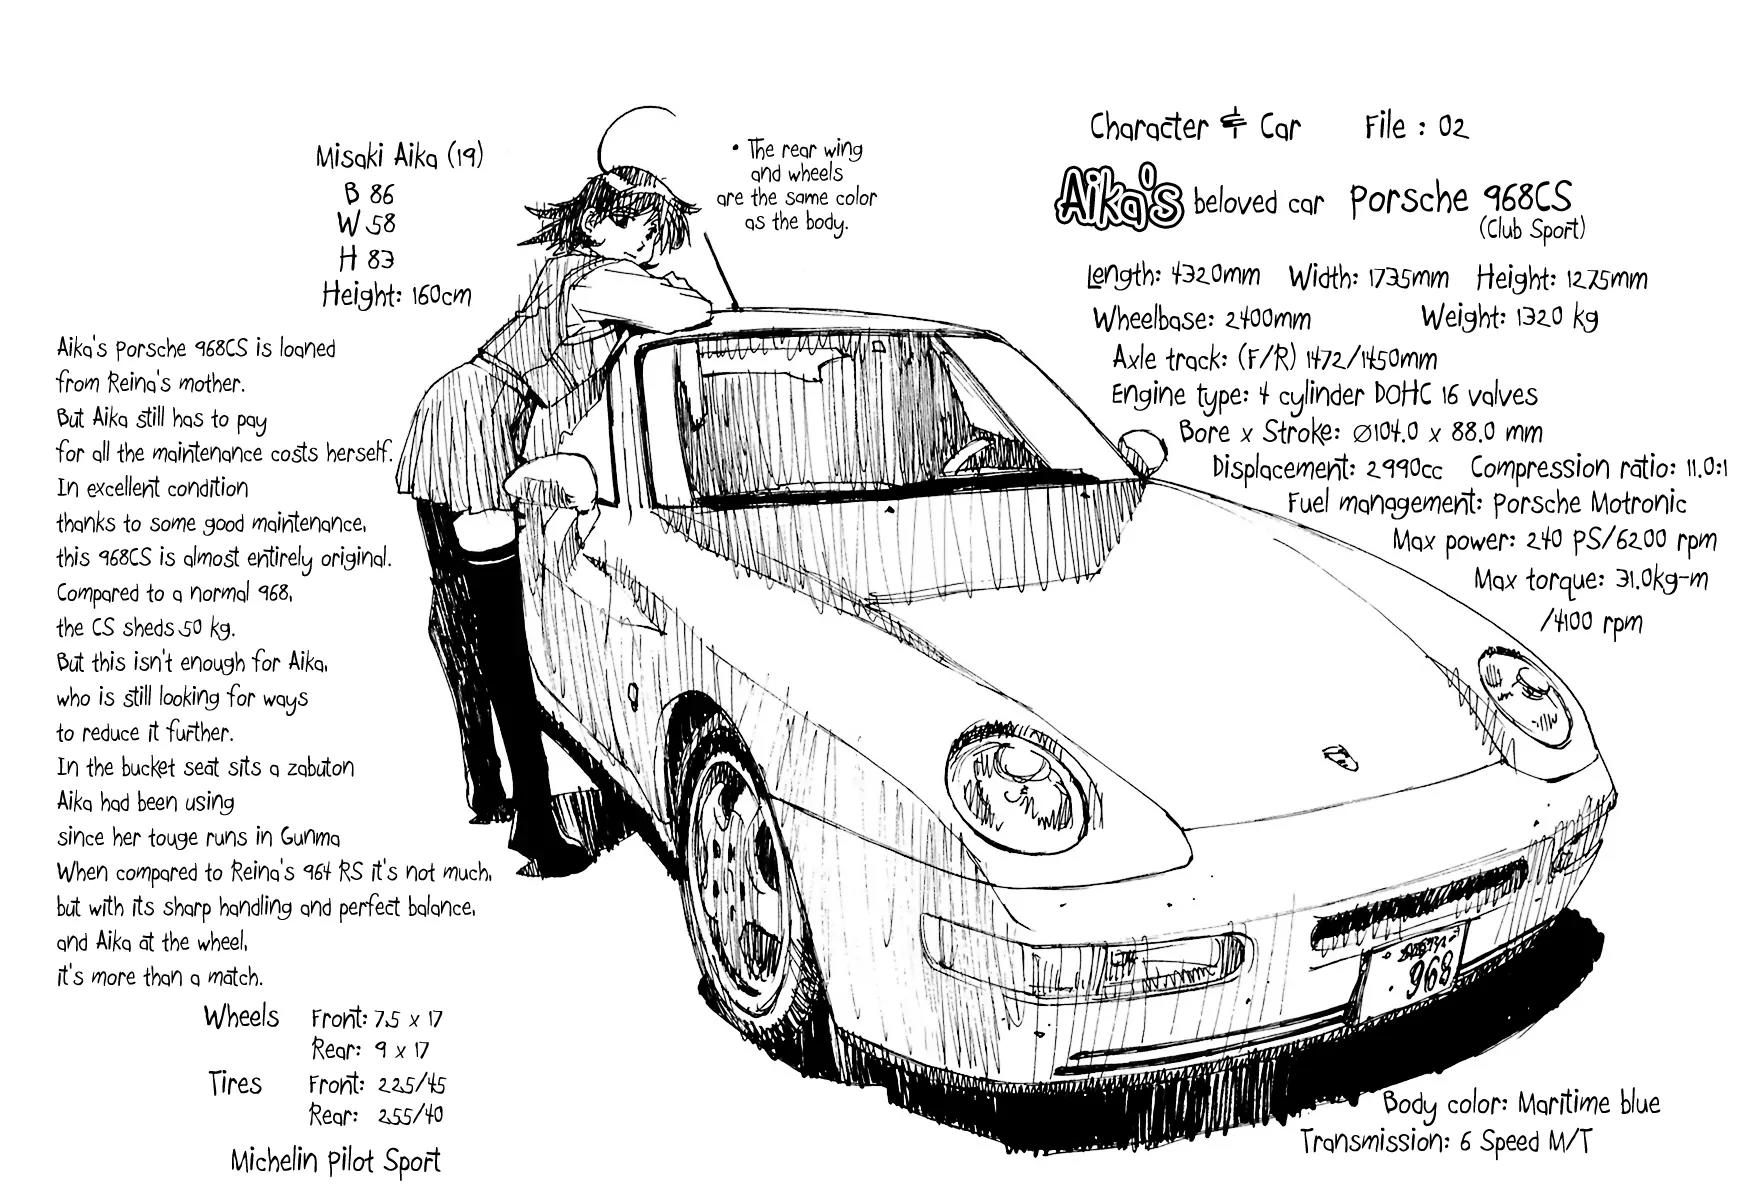 Character & Car File : 02
Aika's beloved car Porsche 968CS
(Club Sport)
Length: 4320mm Width: 1735mm Height: 1275mm
Wheelbase: 2400mm Weight: 1320 kg
Axle track: (F/R) 1472/1450mm
Engine type: 4 cylinder DOHC 16 valves
Bore x Stroke: Ø104.0 x 88.0 mm
Displacement: 2990cc Compression ratio: 11.0:1
Fuel management: Porsche Motronic
Max power: 240 PS/6200 rpm
Max torque: 31.0kg-m
/4100 rpm
Misaki Aika (19)
B 86
W 58
H 83
Height: 160cm
• The rear wing
and wheels
are the same color
as the body.
Aika's Porsche 968CS is loaned
from Reina's mother.
But Aika still has to pay
for all the maintenance costs herself.
In excellent condition
thanks to some good maintenance,
this 968CS is almost entirely original.
Compared to a normal 968,
the CS sheds 50 kg.
But this isn't enough for Aika,
who is still looking for ways
to reduce it further.
In the bucket seat sits a zabuton
Aika had been using
since her touge runs in Gunma
When compared to Reina's 964 RS it's not much,
but with its sharp handling and perfect balance,
and Aika at the wheel,
it's more than a match.
Wheels Front: 7.5 x 17
Rear: 9 x 17
Tires Front: 225/45
Rear: 255/40
Michelin Pilot Sport
968
Body color: Maritime blue
Transmission: 6 Speed M/T